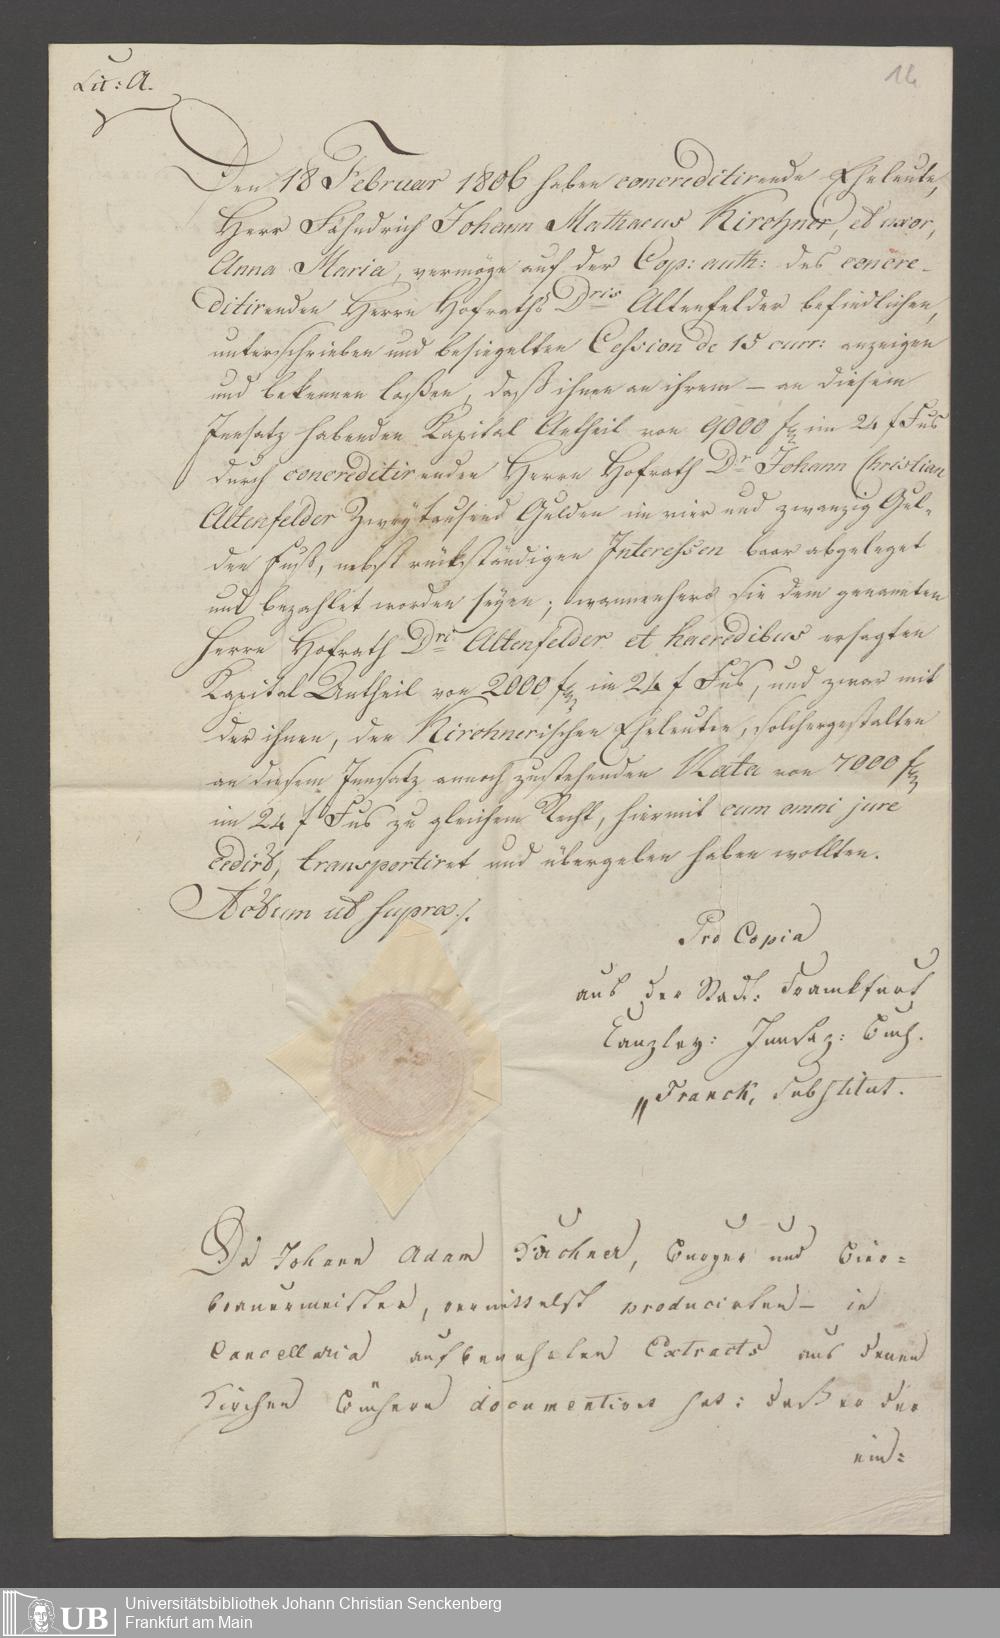 Lit: A.
16
Den 18 Februar 1806 haben concreditirende Eheleute,
Herr Fähndrich Johann Mathaeus Kirchner, et uxor,
Anna Maria, vermöge auf der Cop: auth: des concre-
ditirenden Herrn Hofraths Dris Altenfelder befindlichen,
unterschrieben und besiegelten Cession de 15 curr: anzeigen
und bekennen laßen, daß ihnen an ihrem – an diesem
Innsatz habenden Kapital Antheil von 9000 f im 24 f Fus
durch concreditirenden Herrn Hofrath Dr Johann Christian
Altenfelder Zweytausend Gulden im vier und zwanzig Gul-
den Fuß, nebst rückständigen Interessen baar abgeleget
und bezahlet worden seyen; wannenhero sie dem genannten
Herrn Hofrath Dri Altenfelder et haeredibus ersagten
Kapital Antheil von 2000 f im 24 f Fus, und zwar mit
der ihnen, den Kirchnerischen Eheleuten, solchergestalten
an diesem Innsatz annoch zustehenden Rata von 7000 f
im 24 f Fus zu gleichem Recht, hiermit cum omni jure
cedirt, transportiret und übergeben haben wollten.
Actum ut supra.
Pro Copia
aus der Stadt: Frankfurt
Canzley: Innsaz: Buch.
Franck, Substitut.
Da Johann Adam Kirchner, Burger und Bier=
brauermeister, vermittelst producirten – in
Cancellaria aufbewahrten Extracts aus denen
Kirchen Büchern documentiret hat: daß er der
ein=
UB
Universitätsbibliothek Johann Christian Senckenberg
Frankfurt am Main